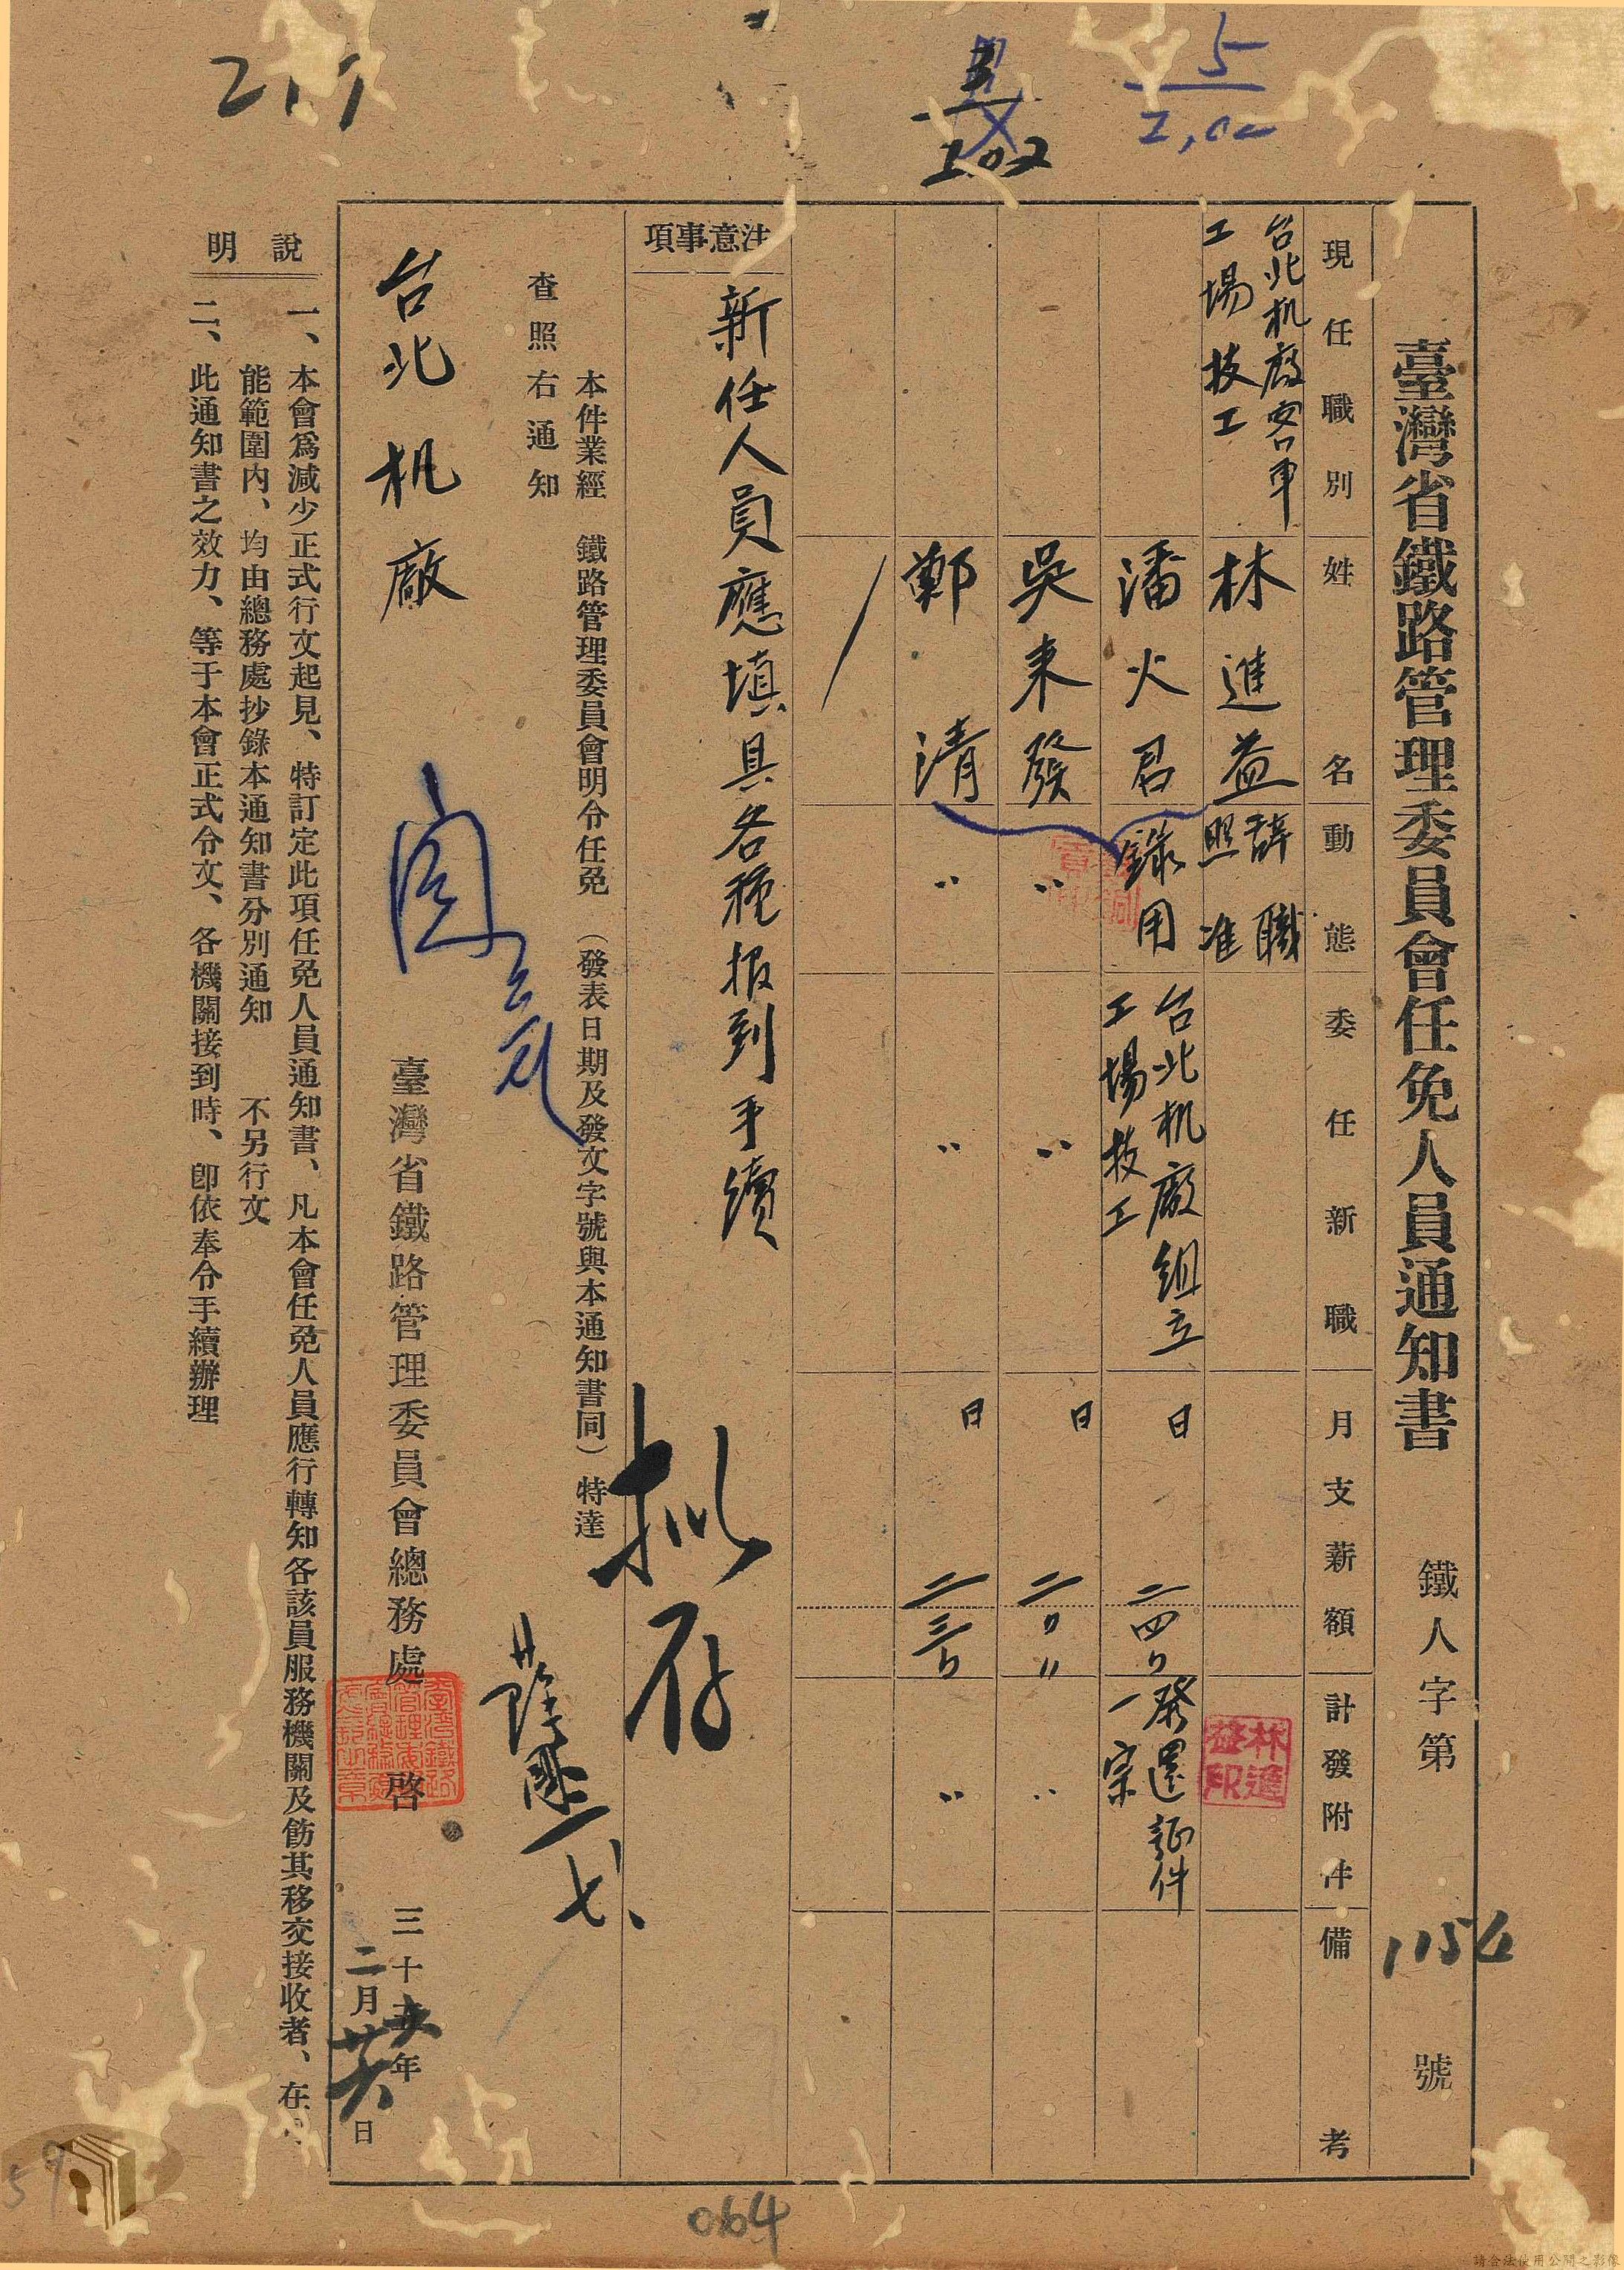 臺灣省鐵路管理委員會任免人員通知書 鐵人字第1156號
現任職別 姓名 動態 委任新職 月支薪額 計發附件 備考
台北机廠客車
工場技工
林進益
辞職
照准
林進益印
潘火君
錄用
台北机廠組立
工場技工
日
二四
發還証件
一宗
吳来發
〃
〃
日
二〇〃
〃
鄭清
〃
〃
日
二三
〃
注意事項
新任人員應填具各種报到手續
拟存
本件業經 鐵路管理委員會明令任免（發表日期及發文字號與本通知書同）特達
查照右通知
台北机廠
臺灣省鐵路管理委員會總務處 啓
三十五年
二月廿六日
說明
一、本會爲減少正式行文起見、特訂定此項任免人員通知書、凡本會任免人員應行轉知各該員服務機關及飭其移交接收者、在
能範圍內、均由總務處抄錄本通知書分別通知 不另行文
二、此通知書之效力、等于本會正式令文、各機關接到時、卽依奉令手續辦理
217
5
2,02
064
59
請合法使用公開之影像